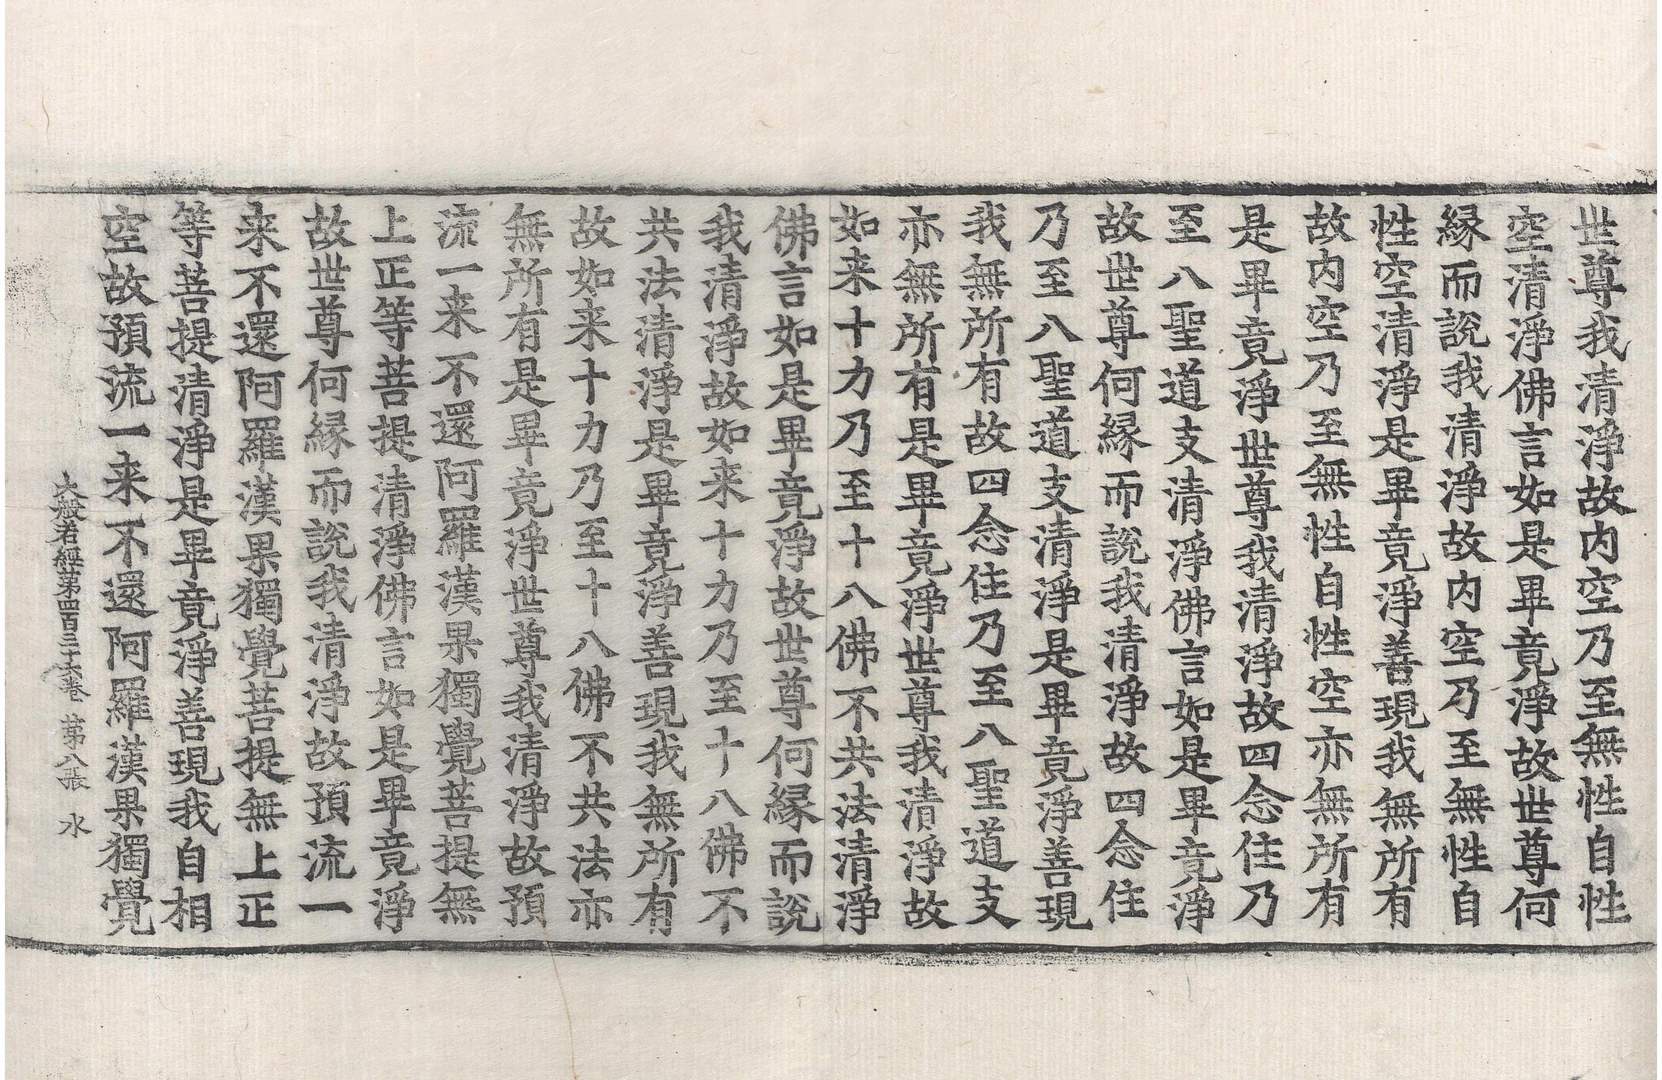 世尊我清淨故内空乃至無性自性
空清淨佛言如是畢竟淨故世尊何
縁而說我清淨故内空乃至無性自
性空清淨是畢竟淨善現我無所有
故内空乃至無性自性空亦無所有
是畢竟淨世尊我清淨故四念住乃
至八聖道支清淨佛言如是畢竟淨
故世尊何縁而說我清淨故四念住
乃至八聖道支清淨是畢竟淨善現
我無所有故四念住乃至八聖道支
亦無所有是畢竟淨世尊我清淨故
如来十力乃至十八佛不共法清淨
佛言如是畢竟淨故世尊何縁而說
我清淨故如来十力乃至十八佛不
共法清淨是畢竟淨善現我無所有
故如来十力乃至十八佛不共法亦
無所有是畢竟淨世尊我清淨故預
流一来不還阿羅漢果獨覺菩提無
上正等菩提清淨佛言如是畢竟淨
故世尊何縁而說我清淨故預流一
来不還阿羅漢果獨覺菩提無上正
等菩提清淨是畢竟淨善現我自相
空故預流一来不還阿羅漢果獨覺
大般若經第四百三十六卷 第八張 水